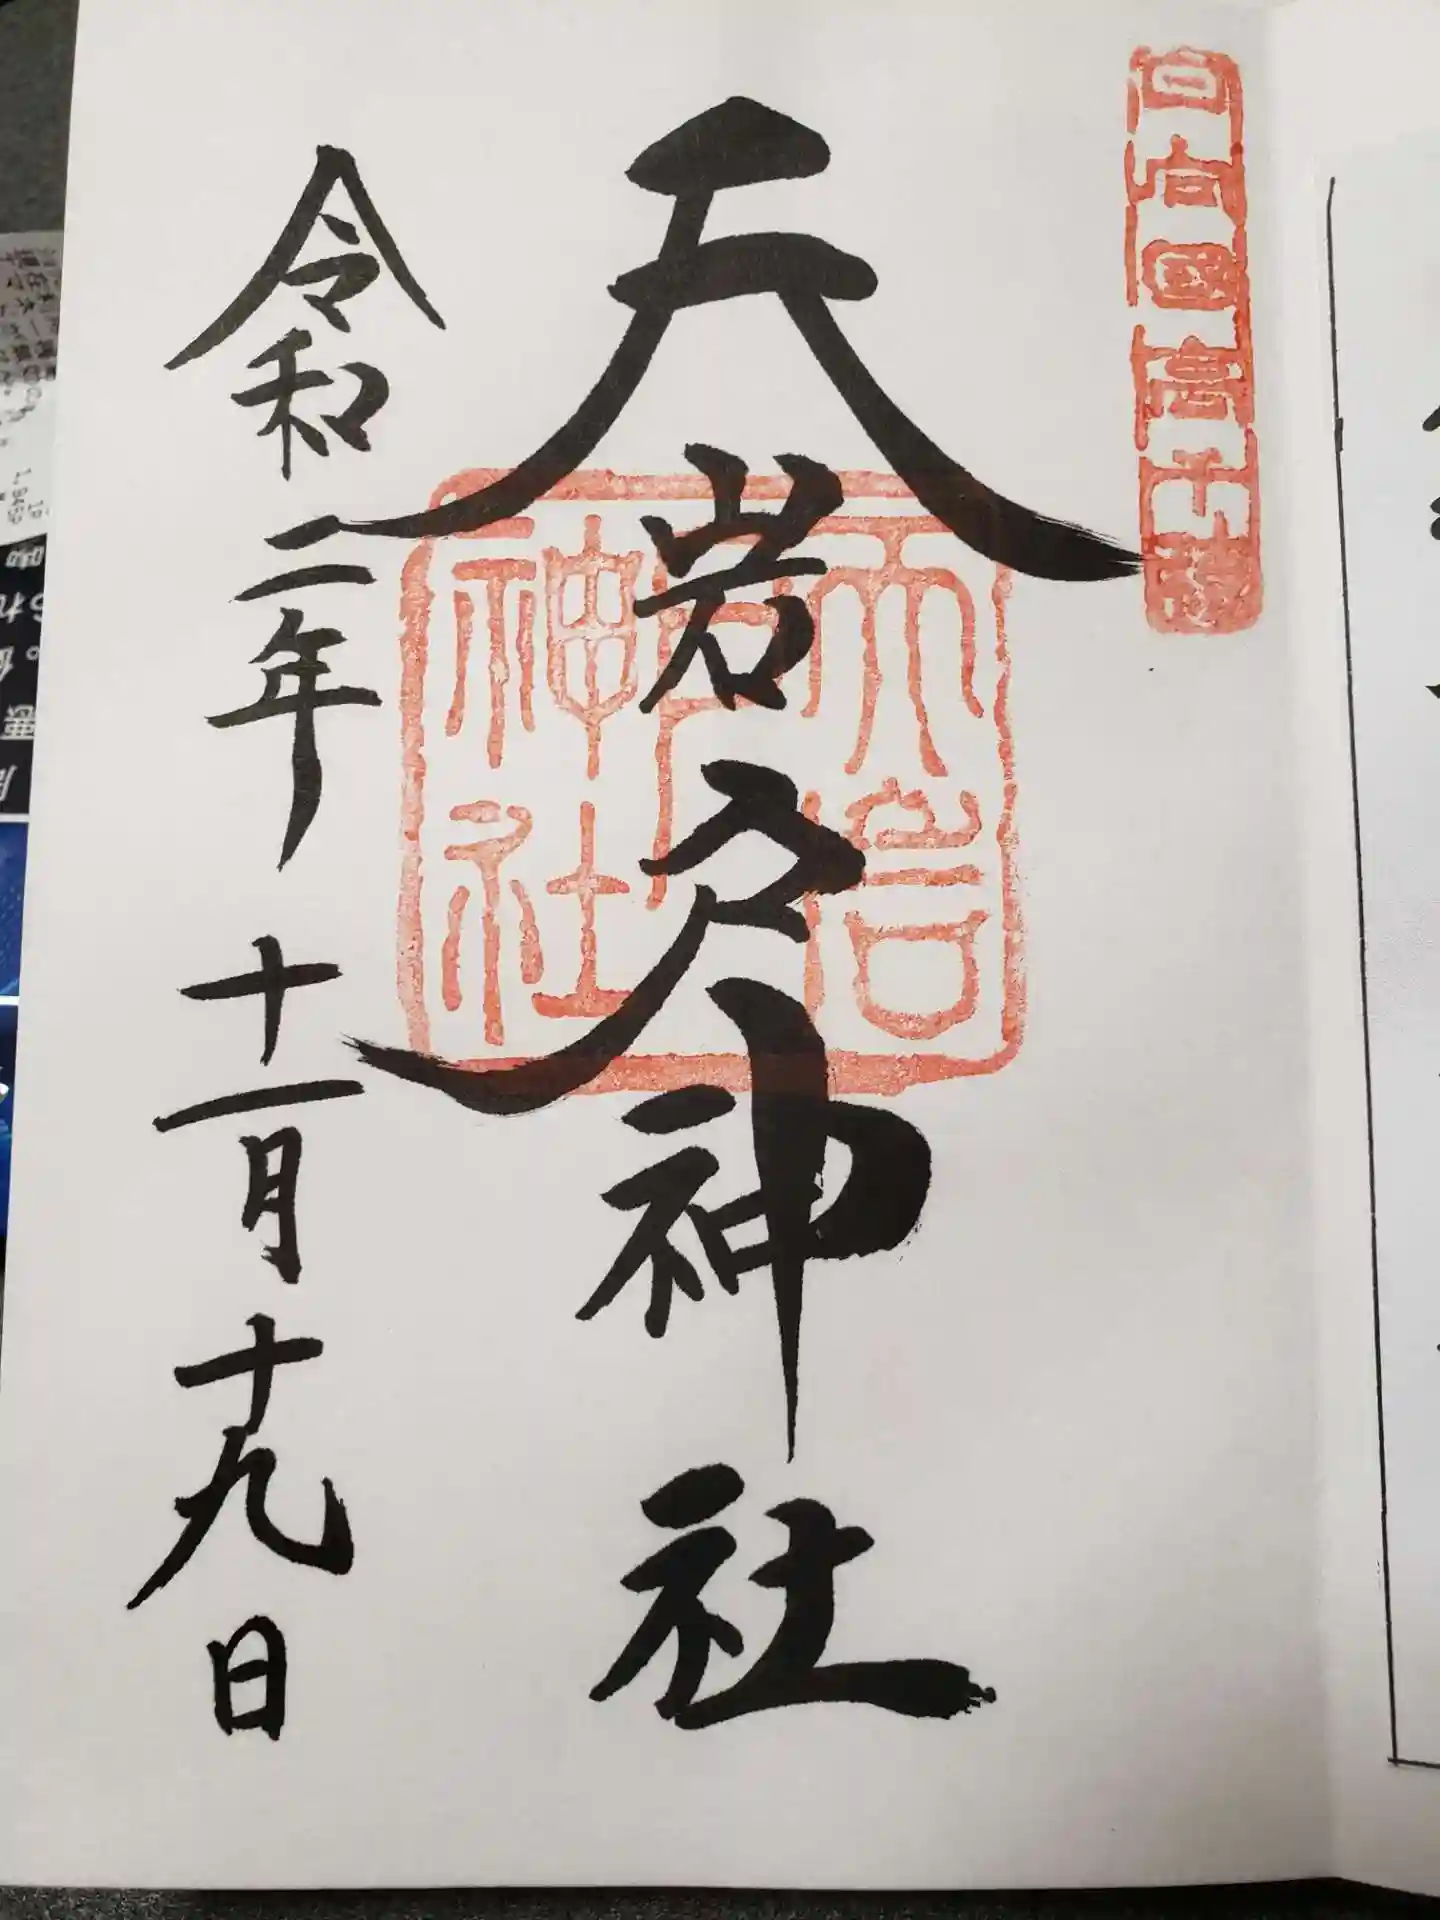 日向國高千穂
天岩戸神社
天岩戸
神社
令和二年 十一月十九日